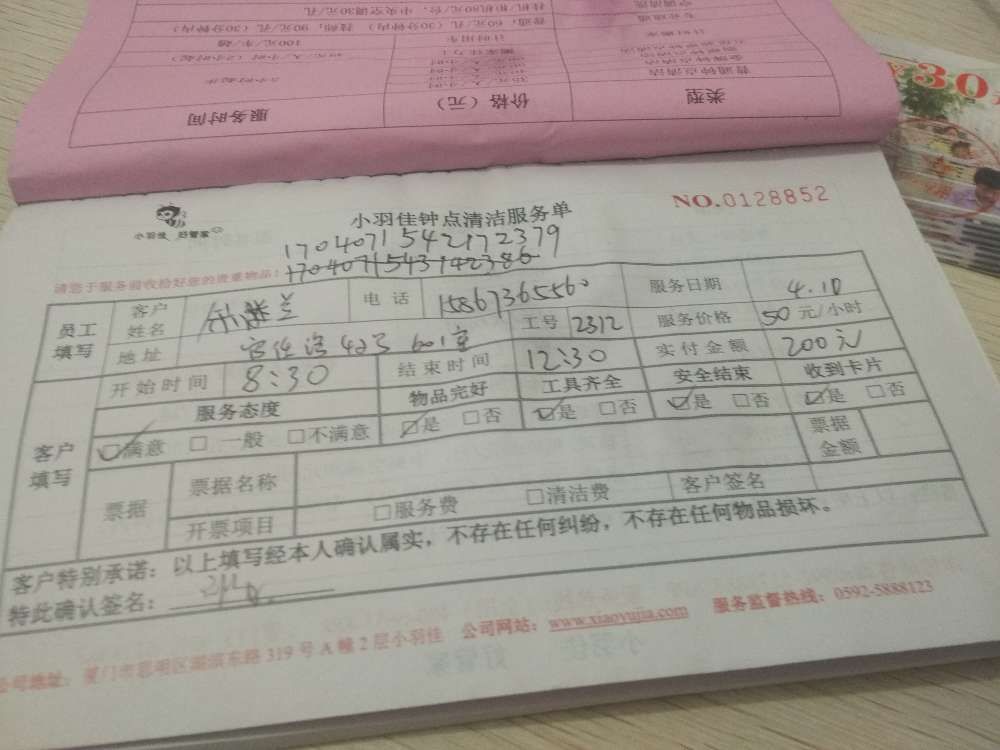 服务时间 价格（元） 类型
普通钟点清洁
100元/车/趟 计时用车
普通：60元/孔（30分钟内） 挂烟：90元/孔（30分钟内）
挂机/柜机80元/台，中央空调30元/孔 空调清洗
30元
小羽佳 好管家
小羽佳钟点清洁服务单
NO.0128852
170407154217 2379
170407154314 2386
请您于服务前收检好您的贵重物品！
员工填写 客户姓名 电话 15867365560 服务日期 4.10
地址 42号 601室 工号 2312 服务价格 50 元/小时
客户填写 开始时间 8:30 结束时间 12:30 实付金额 200元
服务态度 物品完好 工具齐全 安全结束 收到卡片
☑满意 □ 一般 □不满意 ☑是 □否 ☑是 □否 ☑是 □否 ☑是 □否
票据 票据名称 票据金额
开票项目 □服务费 □清洁费 客户签名
客户特别承诺：以上填写经本人确认属实，不存在任何纠纷，不存在任何物品损坏。
特此确认签名：
公司地址：厦门市思明区湖滨东路 319 号 A 幢 2 层小羽佳 公司网站：www.xiaoyujia.com 服务监督热线：0592-5888123
小羽佳
好管家